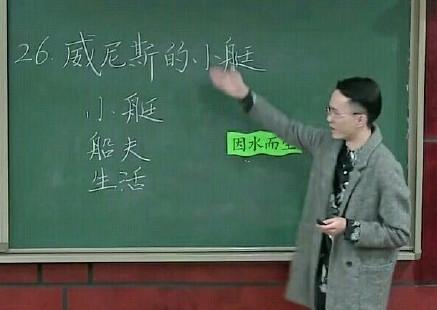 26.威尼斯的小艇
小艇
船夫
因水而生
生活